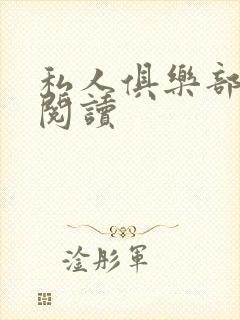 私人俱樂部
閱讀
淦彤軍